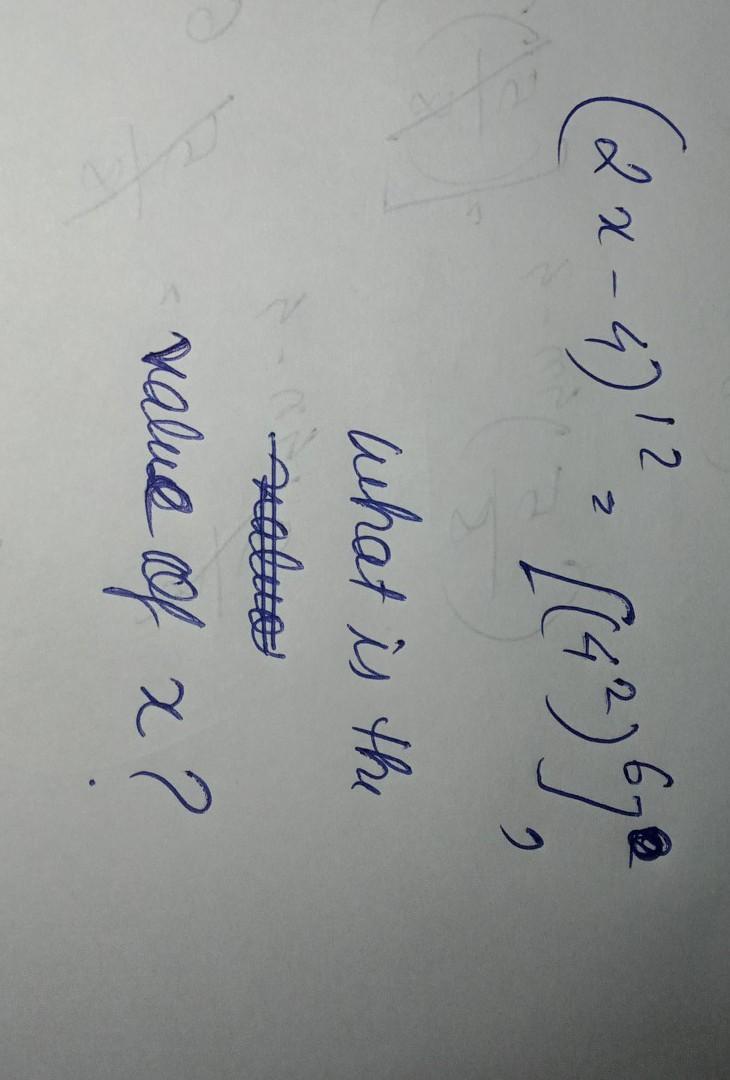 (2x-4)¹² = [(4²)⁶],
what is the
value of x?